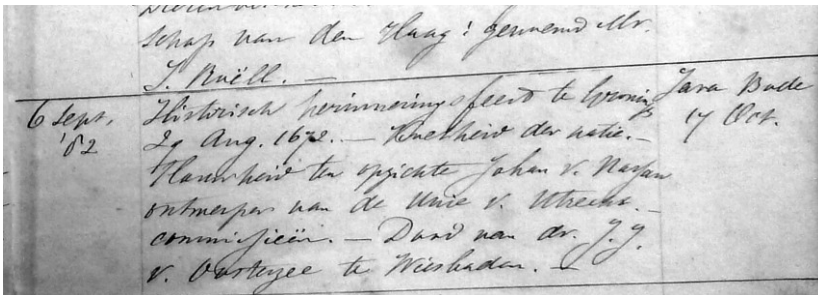 schap van den Haag: genoemd Mr.
S. Roëll. —
6 Sept. '82
Historisch herinneringsfeest te Groning
Java Bode
29 Aug. 1672. — der natie. —
17 Oct.
ten opzichte Johan v. Nassau
ontwerper van de Unie v. Utrecht. —
commissieën. — Dood van dr. J. J.
v. Oosterzee te Wiesbaden. —